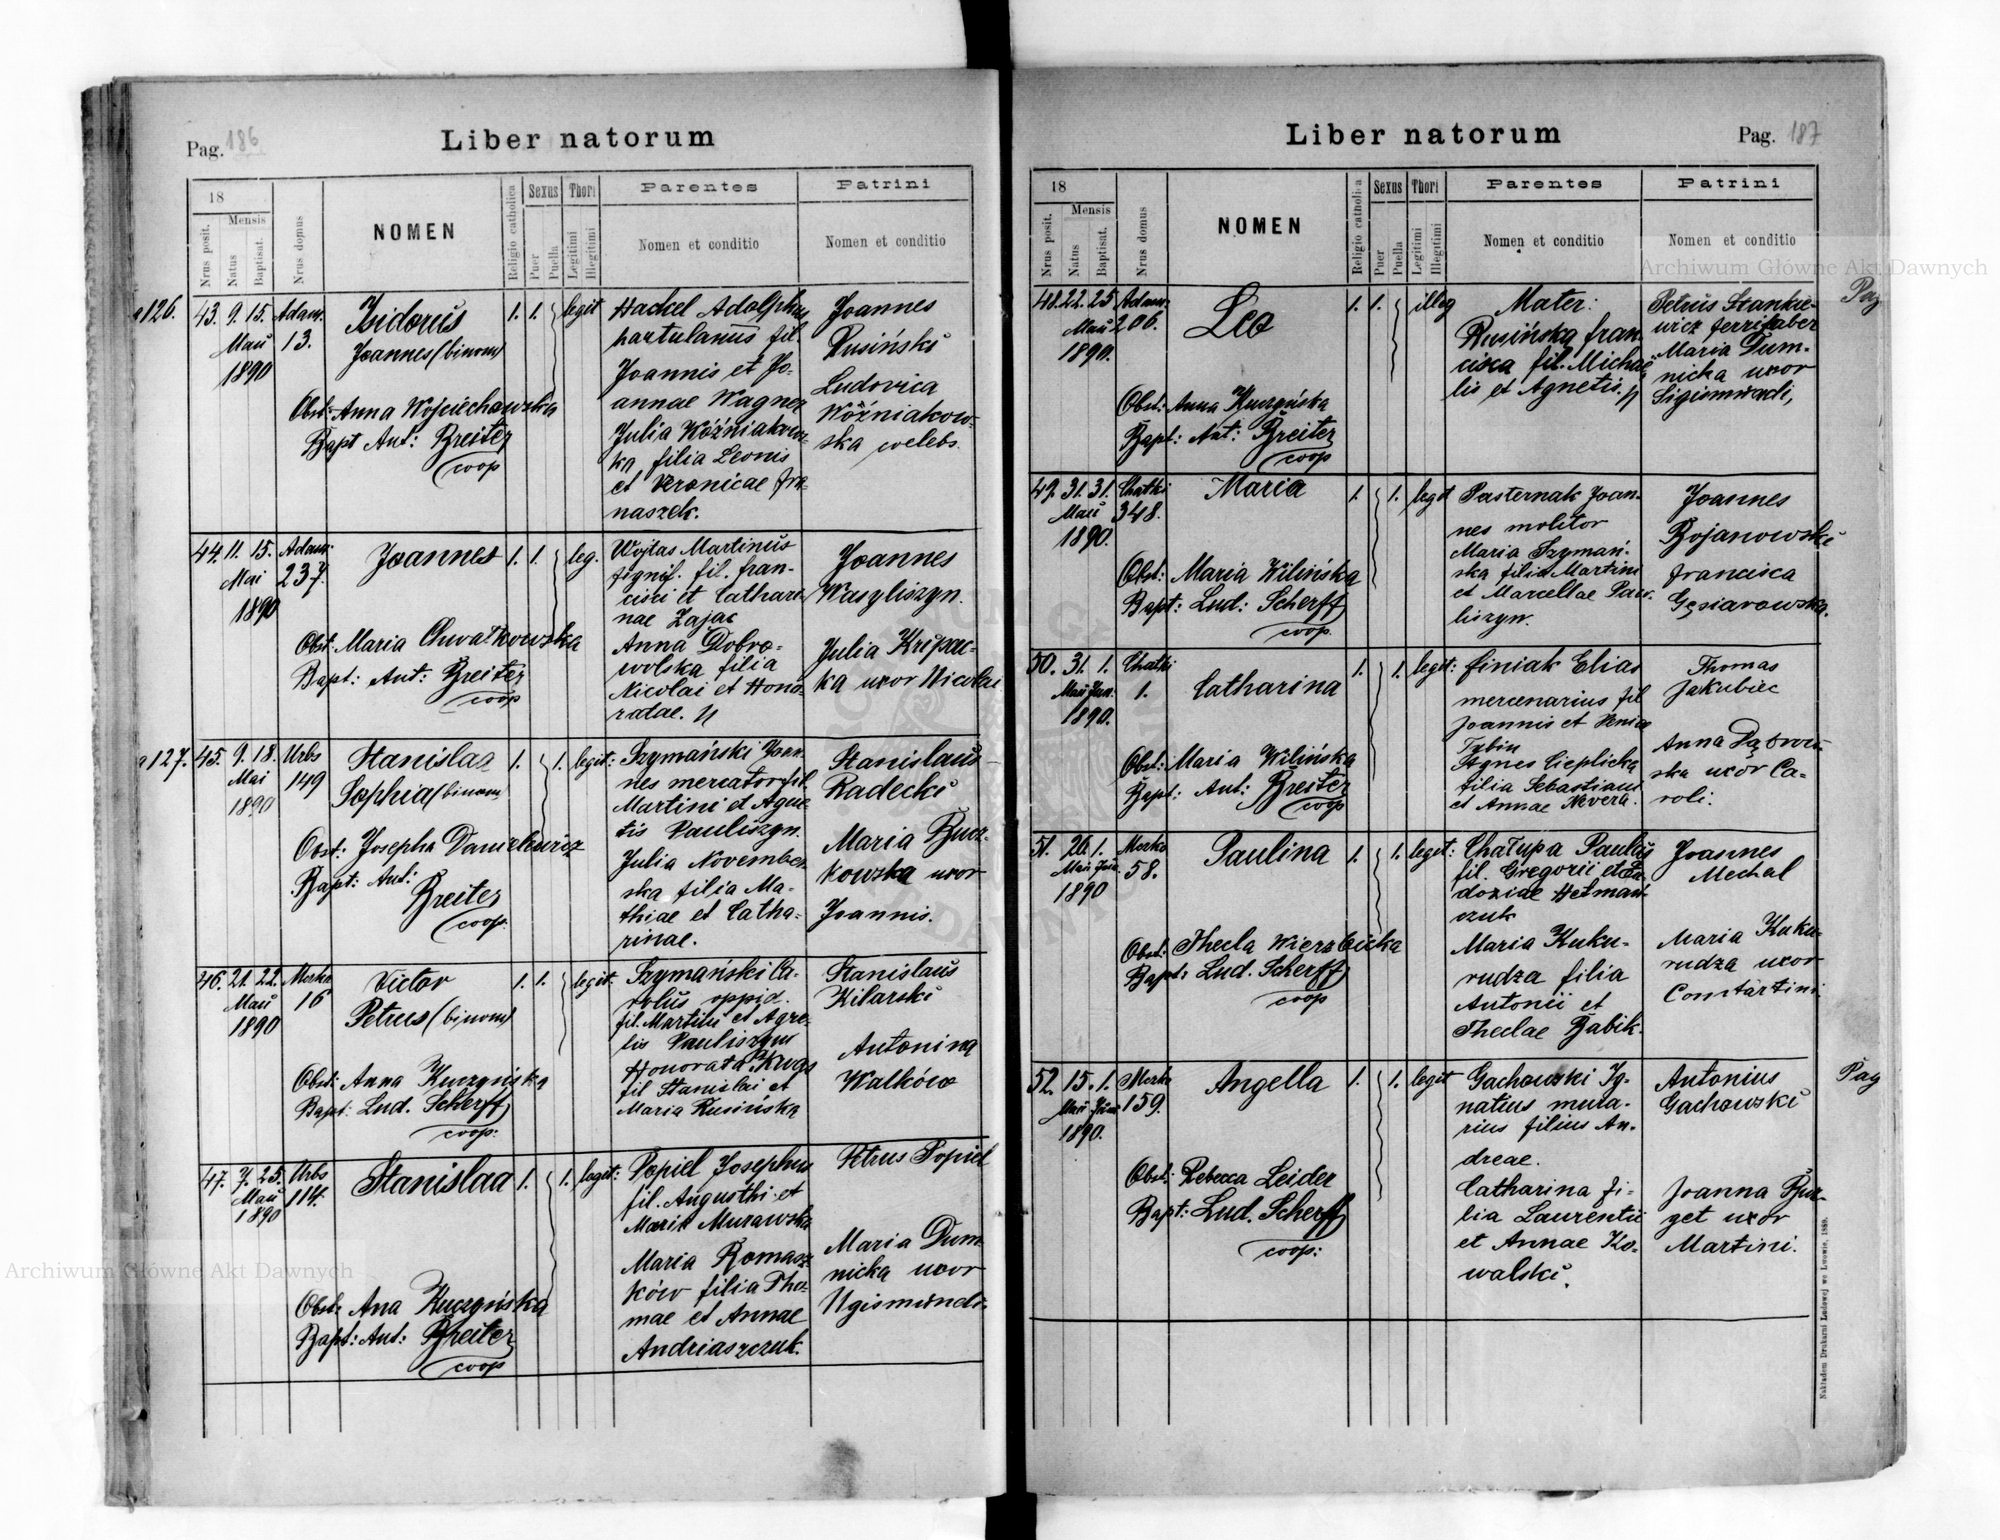 Pag. 186
Liber natorum
18
Mensis
Nrus posit.
Natus
Baptisat.
Nrus domus
NOMEN
Religio catholica
Sexus
Puer
Puella
Thori
Legitimi
Illegitimi
Parentes
Nomen et conditio
Patrini
Nomen et conditio
126.
43. 9. 15. Adam.
Maii 13.
1890
Isidorus
Joannes (binom)
1. 1. legit
Obst: Anna Wojciechowska
Bapt Ant: Breiter
coop
Hackel Adolphus
hartulanus fil.
Joannis et Jo-
annae Wagner
Julia Woźniakow-
ka filia Leonis
et Veronicae
naszek.
Joannes
Rusiński
Ludovica
Woźniakow-
ska celebs.
44. 11. 15. Adam.
Mai 237.
1890
Joannes
1. 1. leg.
Obst: Maria Chwatkowska
Bapt: Ant: Breiter
coop
Wojtas Martinus
fil. Fran-
cisci et Cathari-
nae Zając
Anna Dobro-
wolska filia
Nicolai et Hono-
ratae.
Joannes
Wasyliszyn.
Julia Kripec-
ka uxor Nicolai
127.
45. 9. 18. Urbs
Mai 149
1890
Stanislaa
Sophia (binom)
1. 1. legit:
Obst: Josepha Danielewicz
Bapt: Ant:
Breiter
coop.
Szymański Joan-
nes mercator fil.
Martini et Agne-
tis Pauliszyn.
Julia November-
ska filia Ma-
thiae et Catha-
rinae.
Stanislaus
Radecki
Maria Bucz-
kowska uxor
Joannis.
46. 21. 22. Monko
Maii 16
1890
Victor
Petrus (binom)
1. 1. legit.
Obst: Anna Kuczyńska
Bapt: Lud. Scherff
coop:
Szymański Ca-
rolus oppid.
fil. Martini et Agne-
tis Pauliszyn
Honorata
fil Stanislai et
Maria Rusińska
Stanislaus
Kilarski
Antonina
Walków
47. 7. 25. Urbs
Maii 114.
1890
Stanislaa
1. 1. legit:
Obst: Ana Kuczyńska
Bapt: Ant: Breiter
coop
Popiel Josephus
fil. Augusthi et
Maria Murawska
Maria Romasz-
ków filia Tho-
mae et Annae
Andriaszczuk.
Petrus Popiel
Maria Dum
nicka uxor
Sigismundi.
Liber natorum
Pag. 187
18
Mensis
Nrus posit.
Natus
Baptisat.
Nrus domus
NOMEN
Religio catholica
Sexus
Puer
Puella
Thori
Legitimi
Illegitimi
Parentes
Nomen et conditio
Patrini
Nomen et conditio
Archiwum Główne Akt Dawnych
Pag
48. 22. 25 Adam:
Maii 206.
1890.
Leo
1. 1. illeg
Obst: Anna Kuczyńska
Bapt: Ant: Breiter
coop
Mater:
Rusińska Fran-
cisca fil. Michae-
lis et Agnetis.
Petrus Stankie-
wicz ferrifaber
Maria Dum-
nicka uxor
Sigismundi,
49. 31. 31. Chatki
Maii 348.
1890.
Maria
1. 1. legit
Obst: Maria Wilińska
Bapt: Lud: Scherff
coop.
Pasternak Joan-
nes molitor
Maria Szymań-
ska filia Martini
et Marcellae Paw-
liszyn.
Joannes
Bojanowski
Francisca
Gąsiarowska.
50. 31. 1. Chatki
Maii Jun. 1.
1890.
Catharina
1. 1. legit:
Obst: Maria Wilińska
Bapt: Ant: Breiter
coop
Finiak Elias
mercenarius fil
Joannis et Xenia
Tybin
Agnes Cieplicka
filia Sebastiani
et Annae Nevera.
Thomas
Jakubiec
Anna Dąbrow-
ska uxor Ca-
roli.
51. 26. 1. Monko
Maii Jun. 58.
1890
Paulina
1. 1. legit:
Obst: Thecla Wierzbicka
Bapt: Lud. Scherff
coop
Chałupa Paulus
fil. Gregorii et Eu-
doxiae Hetmań-
czuk
Maria Kuku-
rudza filia
Antonii et
Theclae Babik.
Joannes
Mechal
Maria Kuku-
rudza uxor
Constantini
52. 15. 1. Monko
Maii Jun. 159.
1890.
Angella
1. 1. legit
Obst: Rebecca Leider
Bapt: Lud. Scherff
coop:
Gachowski Ig-
natius mura-
rius filius An-
dreae.
Catharina fi-
lia Laurentii
et Annae Ko-
walski.
Antonius
Gachowski
Joanna Bur-
get uxor
Martini.
Pag
Nakładem Drukarni Ludowej we Lwowie, 1889.
Archiwum Główne Akt Dawnych